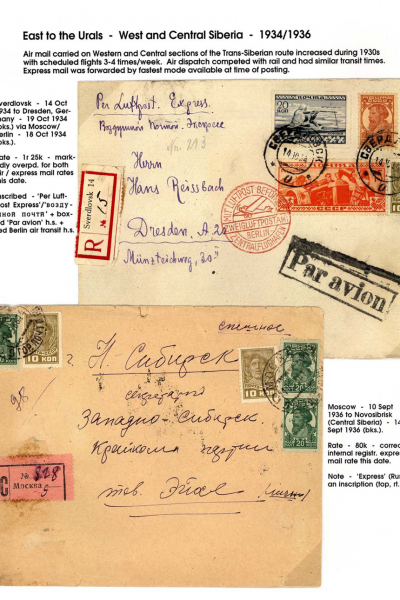 East to the Urals - West and Central Siberia - 1934/1936
Air mail carried on Western and Central sections of the Trans-Siberian route increased during 1930s
with scheduled flights 3-4 times/week. Air dispatch competed with rail and had similar transit times.
Express mail was forwarded by fastest mode available at time of posting.
verdlovsk - 14 Oct
34 to Dresden, Ger-
any - 19 Oct 1934
ks.) via Moscow/
erlin - 18 Oct 1934
ks.)
ate - 1r 25k - mark-
dly overpd. for both
ir / express mail rates
his date.
nscribed - 'Per Luft-
ost Express'/'возду-
нной почтй' + box-
d 'Par avion' h.s. +
ed Berlin air transit h.s.
Per Luftpost. Express.
Воздушной Почтой. Экспресс
Herrn
Hans Reissbach
Dresden, A. 24
Münzteichweg, 30 II
Sverdlovsk 14
R
№ 15
20
КОП
СССР
MIT LUFTPOST BEFÖRDERT
BERLIN
ZENTRALFLUGHAFEN
Par avion
10 КОП
спешное
г. Н. Сибирск
секретарю
Западно-Сибирск.
Крайкома партии
тов. Эйхе (лично)
10 КОП
20
20
98/
№ 828
Москва
5
Moscow - 10 Sept
1936 to Novosibirsk
(Central Siberia) - 14
Sept 1936 (bks.).
Rate - 80k - correc
internal registr. expre
mail rate this date.
Note - 'Express' (Ru
an inscription (top, rt.